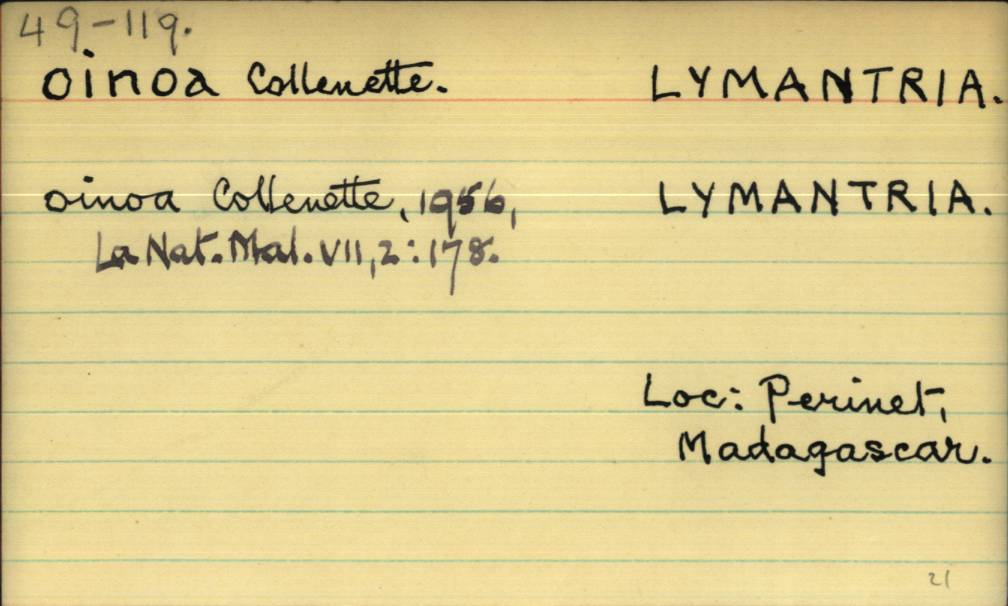 49-119.
oinoa Collenette. LYMANTRIA.
oinoa Collenette, 1956, LYMANTRIA.
La Nat. Mal. VII, 2:178.
Loc: Perinet,
Madagascar.
21